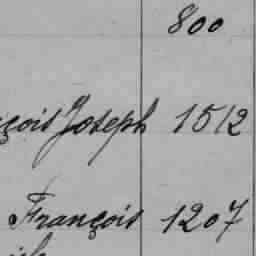 800
çois Joseph 1512
François 1207